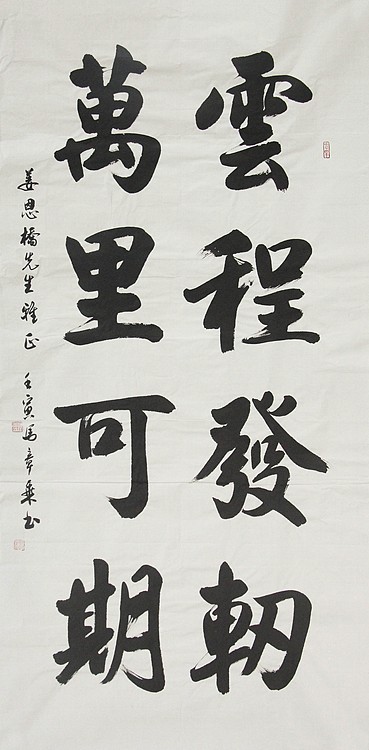 雲程發軔
萬里可期
姜思橋先生雅正 壬寅馬章乘书